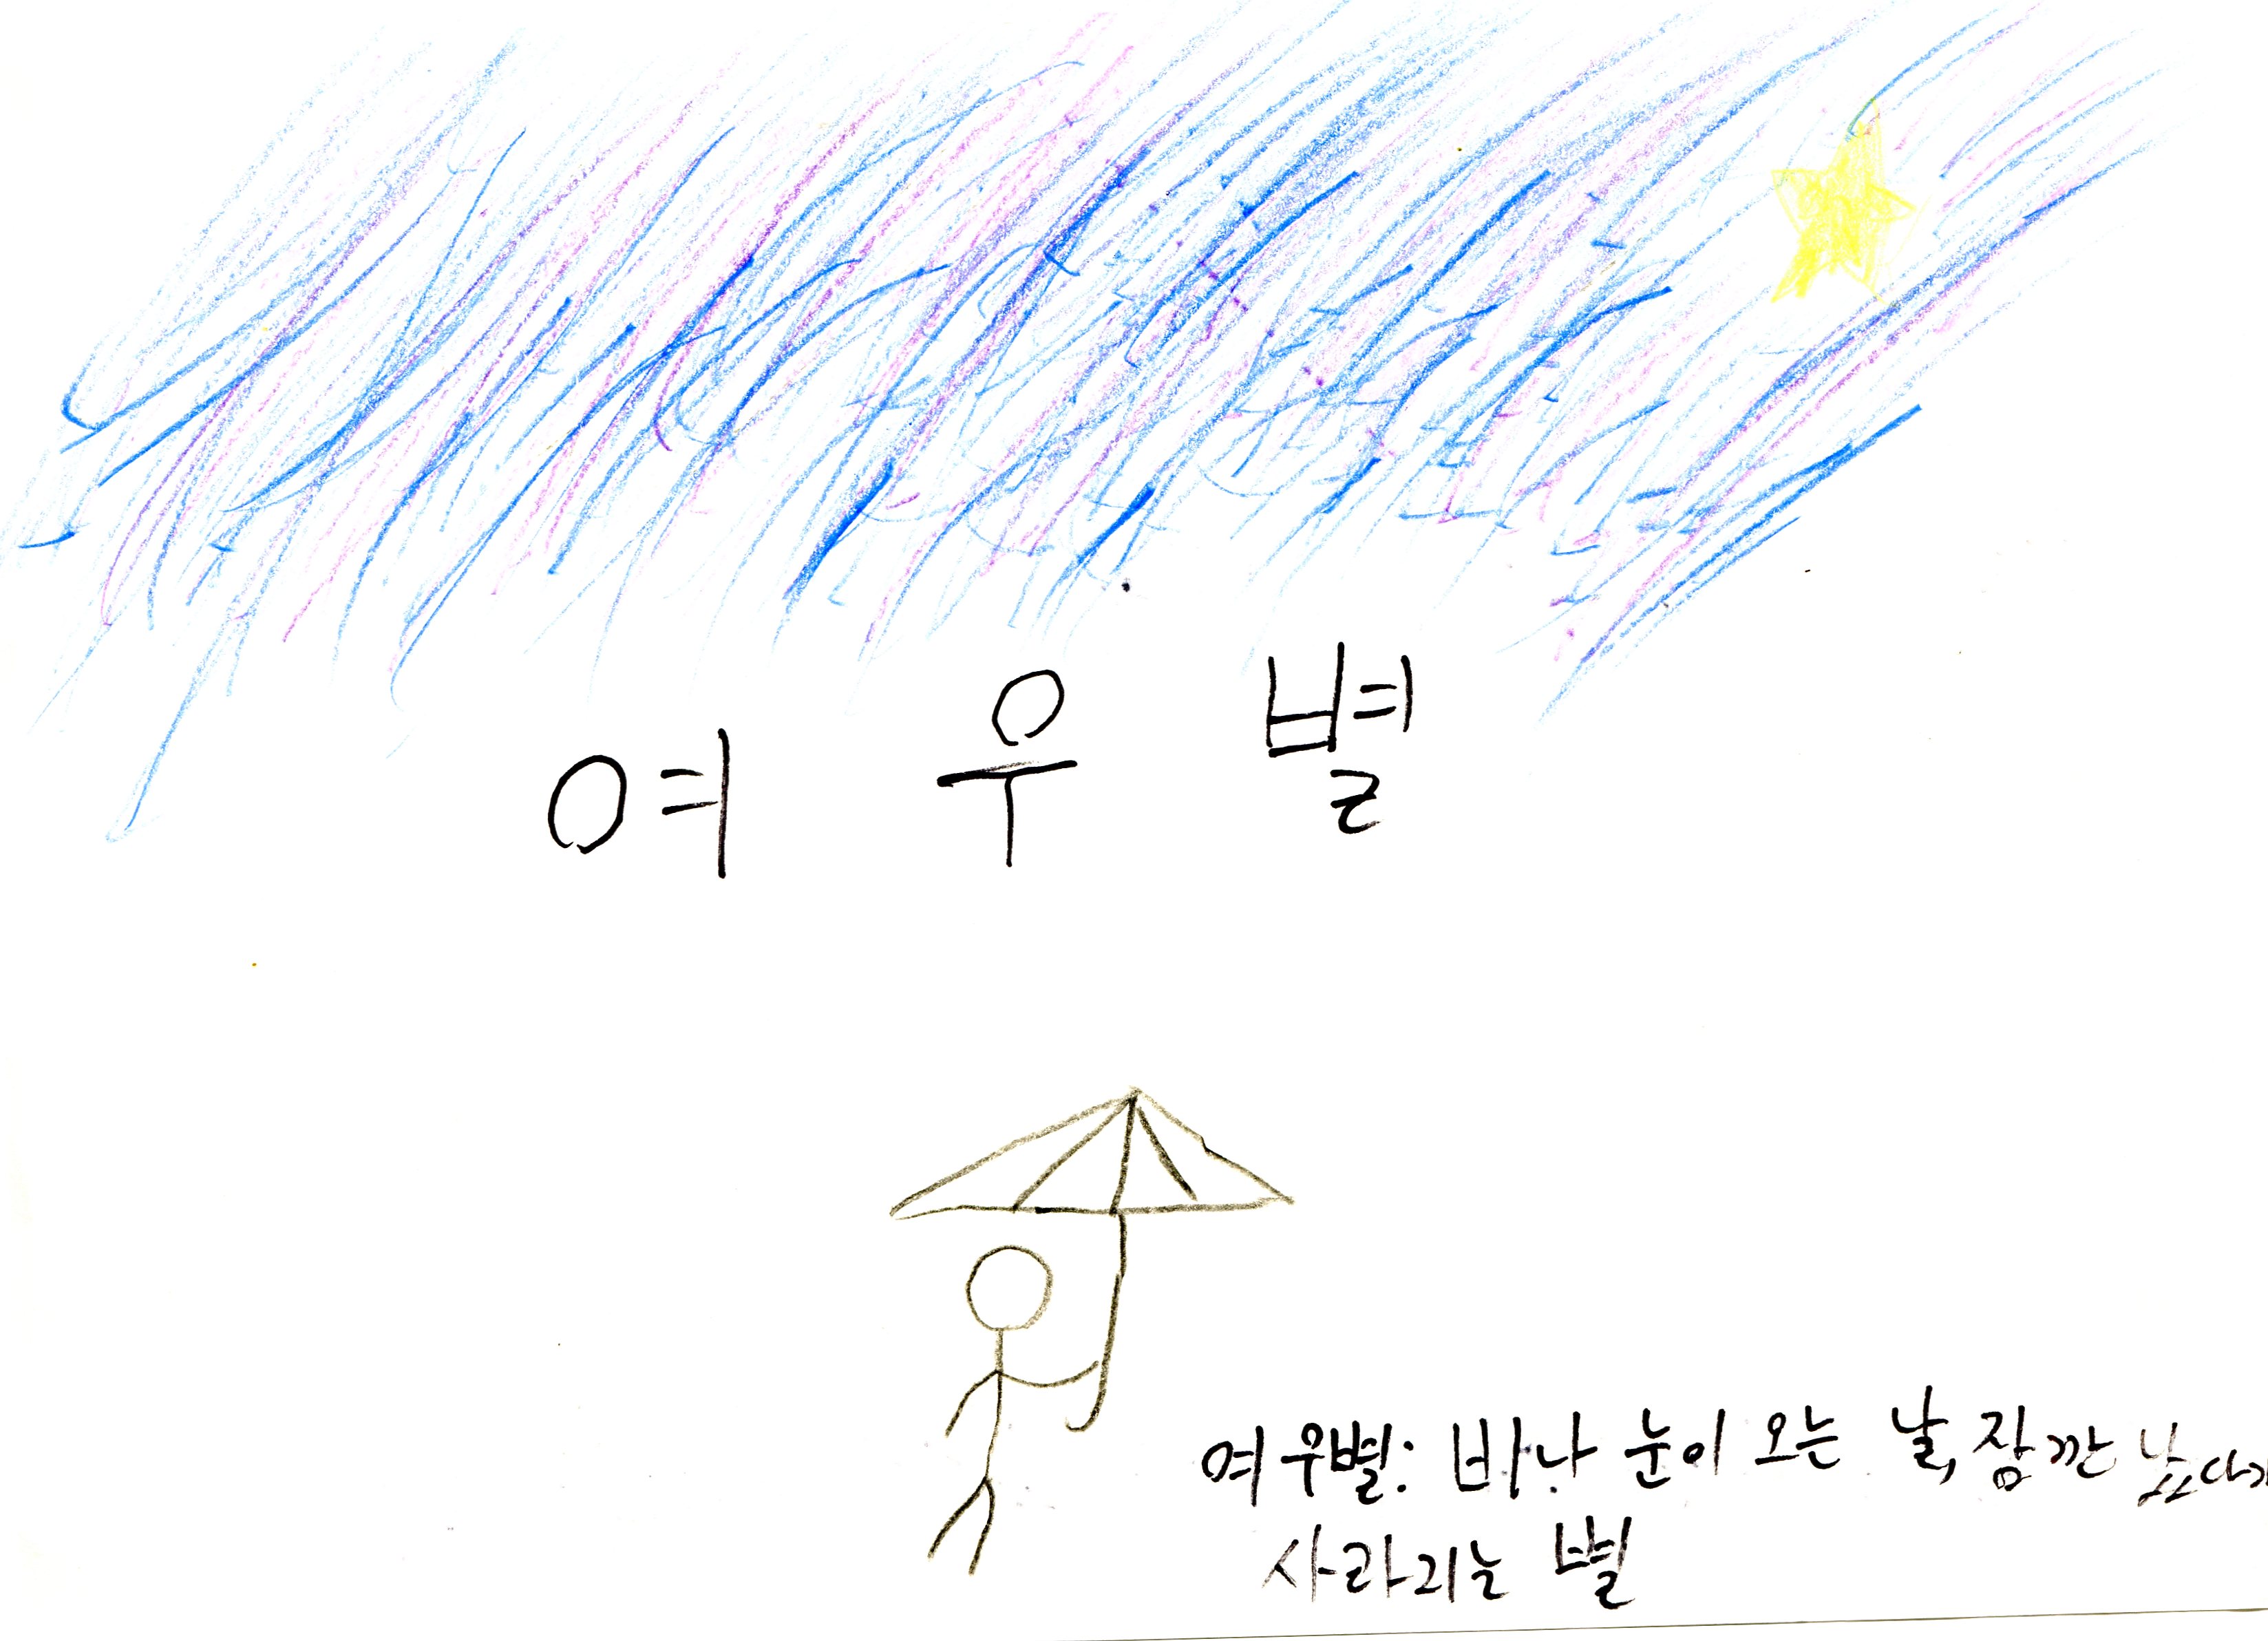 여 우 별
여우별: 비나 눈이 오는 날, 잠깐 났다가
사라지는 별